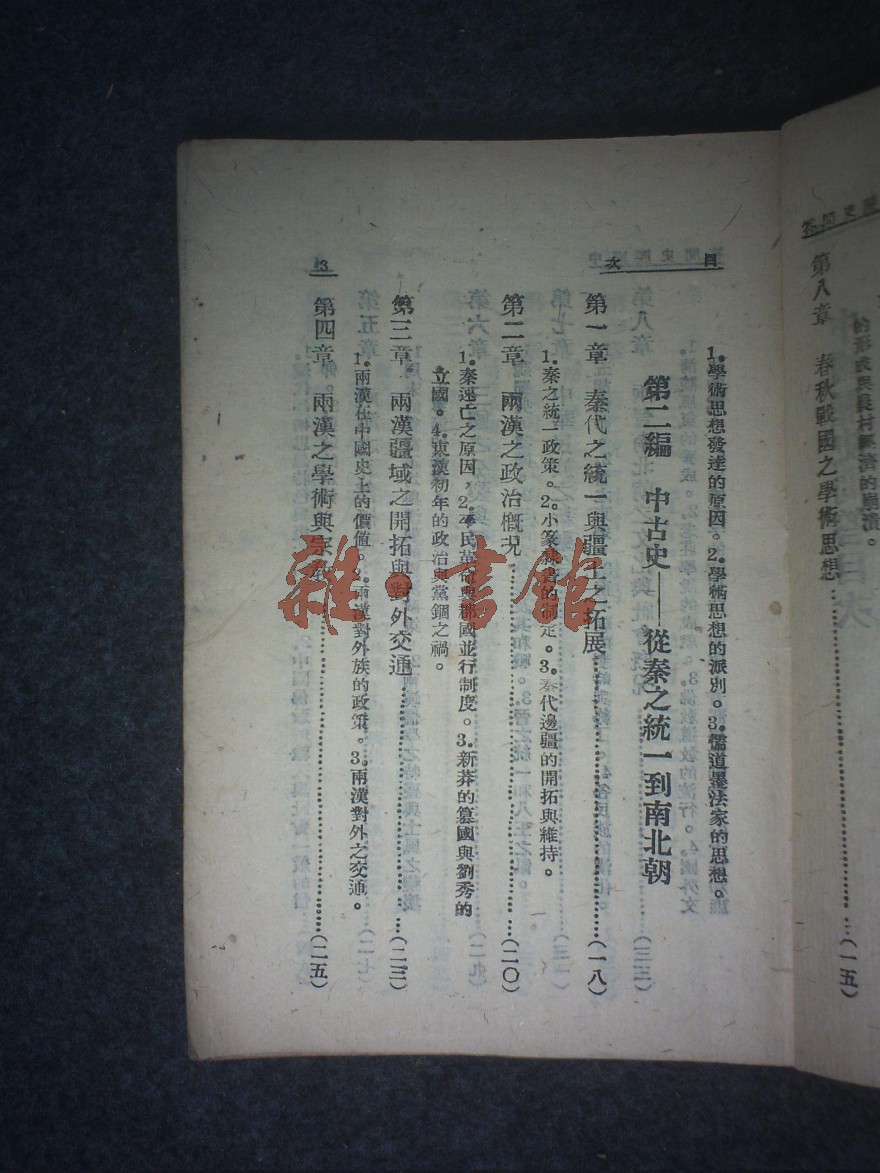 史問答
第八章 春秋戰國之學術思想……(一五)
目次
1.學術思想發達的原因。2.學術思想的派別。3.儒道墨法家的思想。
第二編 中古史——從秦之統一到南北朝
第一章 秦代之統一與疆土之拓展……(一八)
1.秦之統一政策。2.小篆隸書的制定。3.秦代邊疆的開拓與維持。
第二章 兩漢之政治概况……(二〇)
1.秦速亡之原因,2.平民革命與郡國並行制度。3.新莽的篡國與劉秀的
立國。4.東漢初年的政治與黨錮之禍。
第三章 兩漢疆域之開拓與對外交通……(二三)
1.兩漢在中國史上的價值。2.兩漢對外族的政策。3.兩漢對外之交通。
第四章 兩漢之學術與宗教……(二五)
3
雜·書館